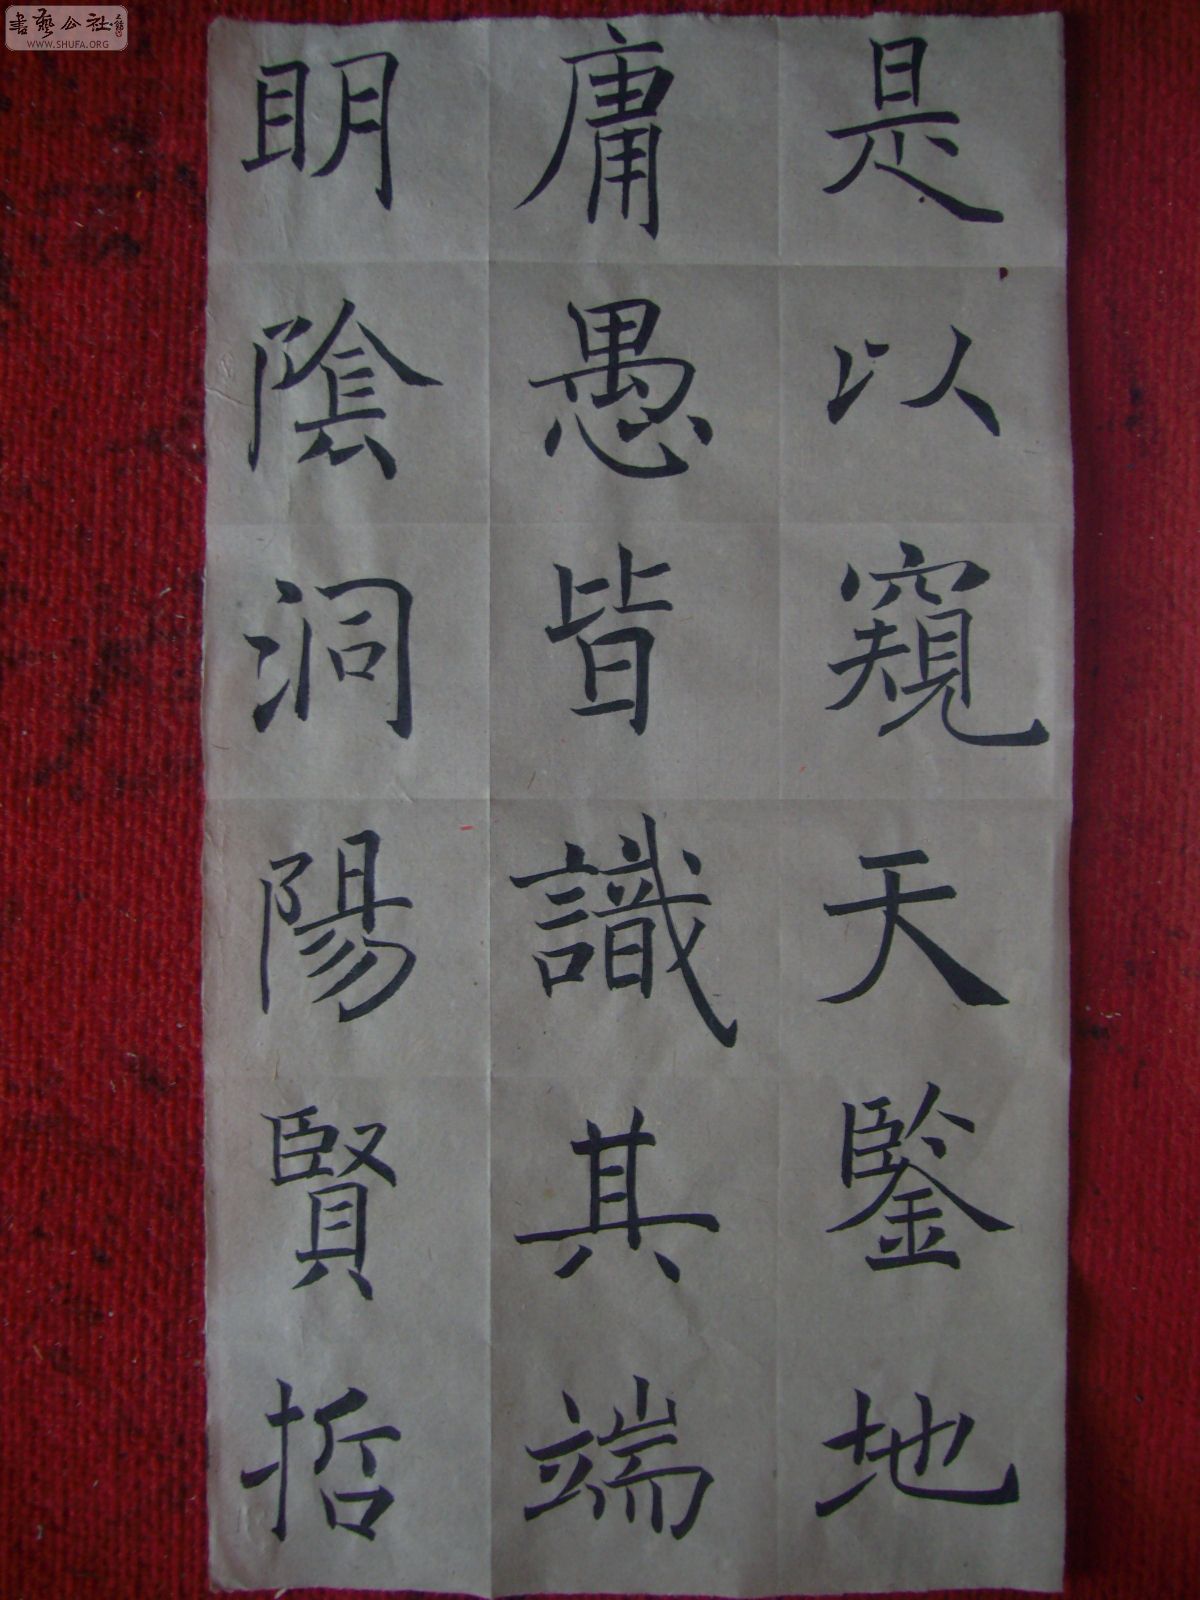 是以窺天鑒地
庸愚皆識其端
明陰洞陽賢哲
書藝公社
WWW.SHUFA.ORG